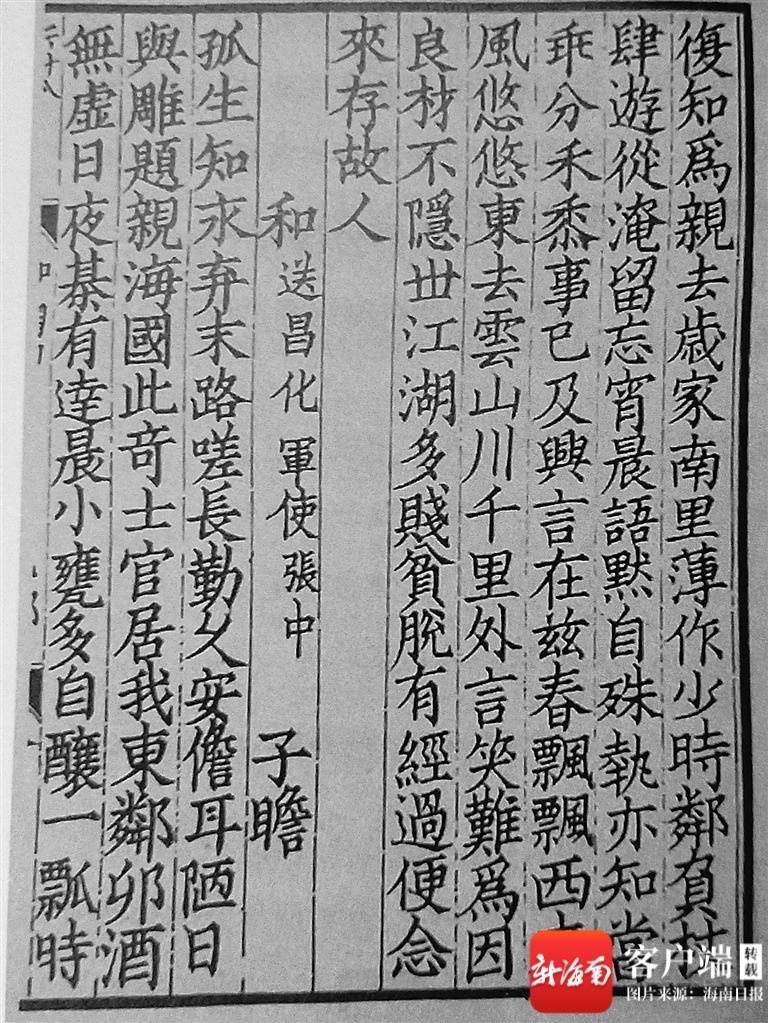 復知爲親去歲家南里薄作少時鄰負杖
肆遊從淹留忘宵晨語默自殊執亦知當
乖分未黍事已及興言在兹春飄飄西
風悠悠東去雲山川千里外言笑難爲因
良材不隱世江湖多賤貧脫有經過便念
來存故人
和送昌化軍使張中 子瞻
孤生知永弃末路嗟長勤久安儋耳陋日
與雕題親海國此奇士官居我東鄰卯酒
無虛日夜棊有達晨小甕多自釀一瓢時
二十八
新海南
客户端
转载
图片来源：海南日报